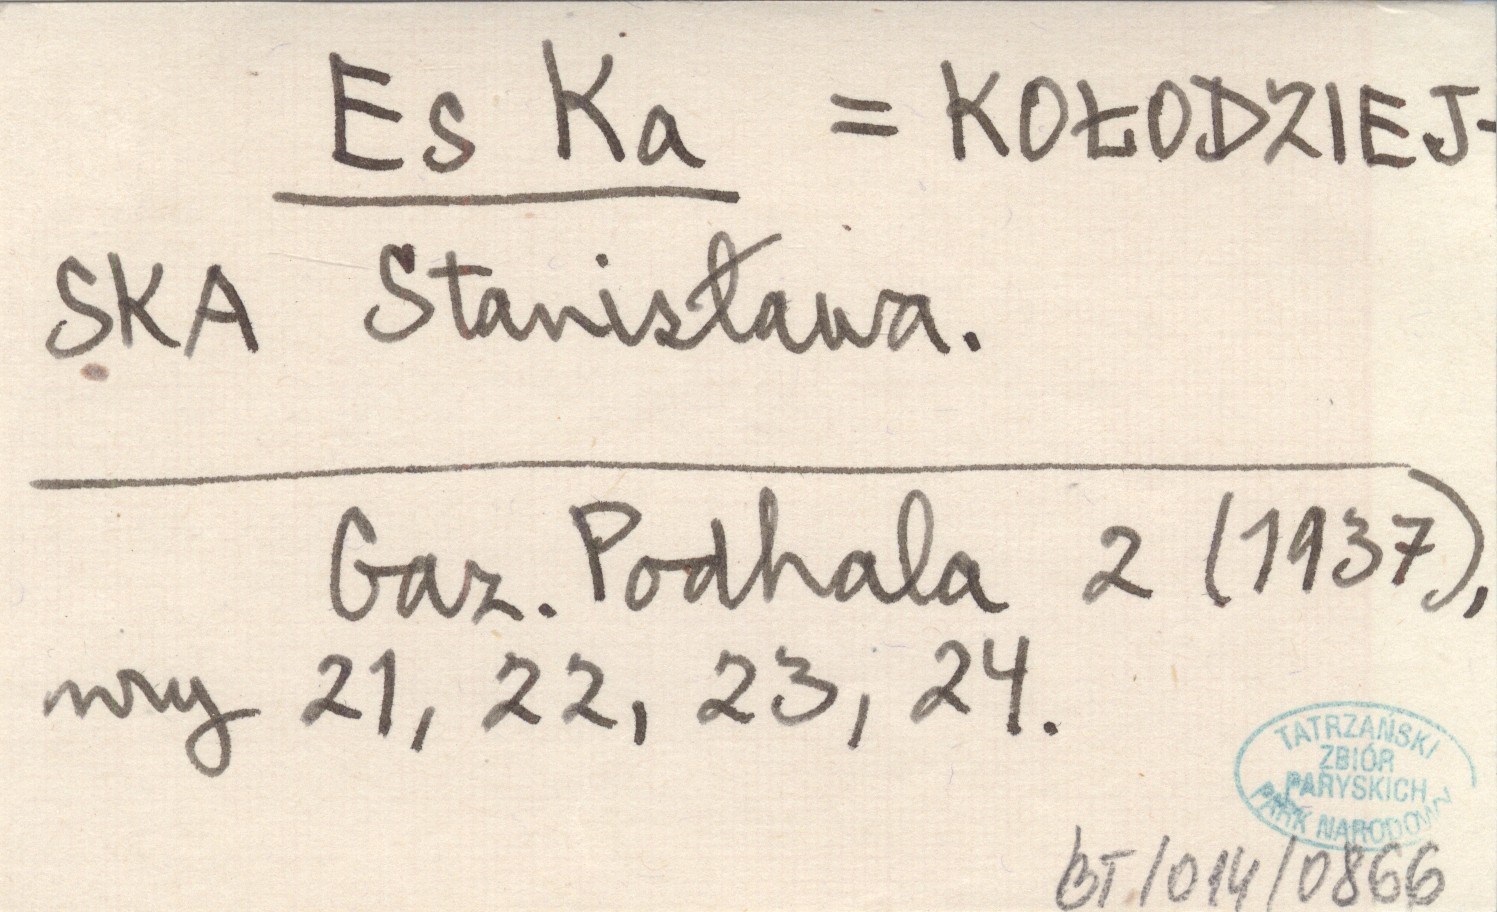 Es Ka = KOŁODZIEJ-
SKA Stanisława.
Gaz. Podhala 2 (1937),
nry 21, 22, 23, 24.
TATRZAŃSKI
ZBIÓR
PARYSKICH
PARK NARODOWY
BT/014/0866